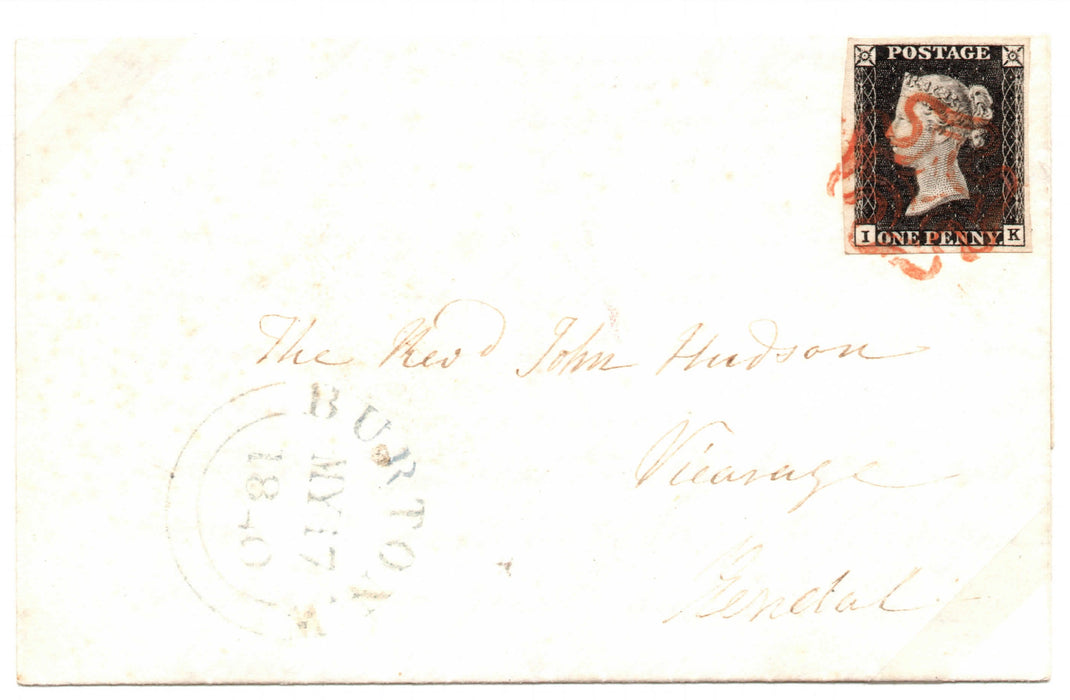 POSTAGE
I ONE PENNY K
The Revd John Hudson
Vicarage
Kendal
BURTON
MY 17
1840